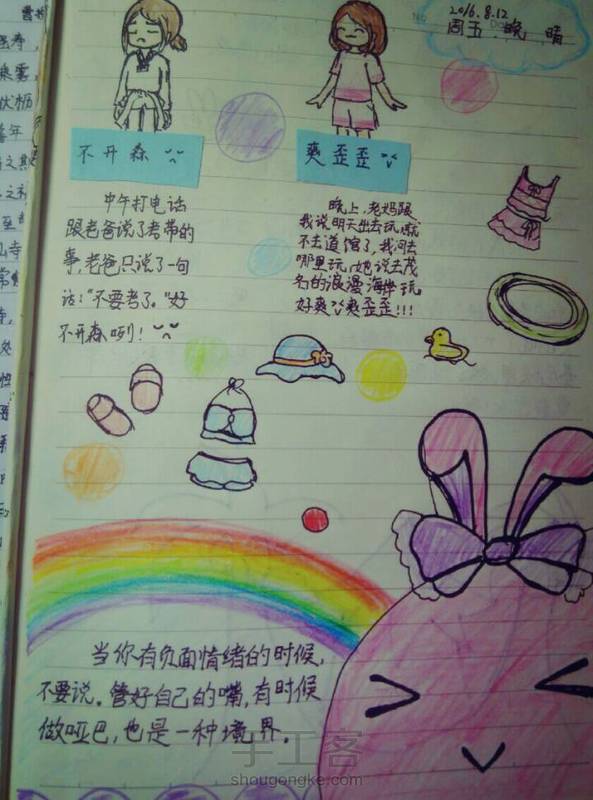 2016.8.12
周五 晚 晴
不开森
爽歪歪
中午打电话
跟老爸说了考带的
事,老爸只说了一句
话:“不要考了。”好
不开森咧!
晚上,老妈跟
我说明天出去玩,就
不去道馆了,我问去
哪里玩,她说去茂
名的浪漫海岸玩。
好爽爽歪歪!!!
当你有负面情绪的时候,
不要说。管好自己的嘴,有时候
做哑巴,也是一种境界。
手工客
shougongke.com